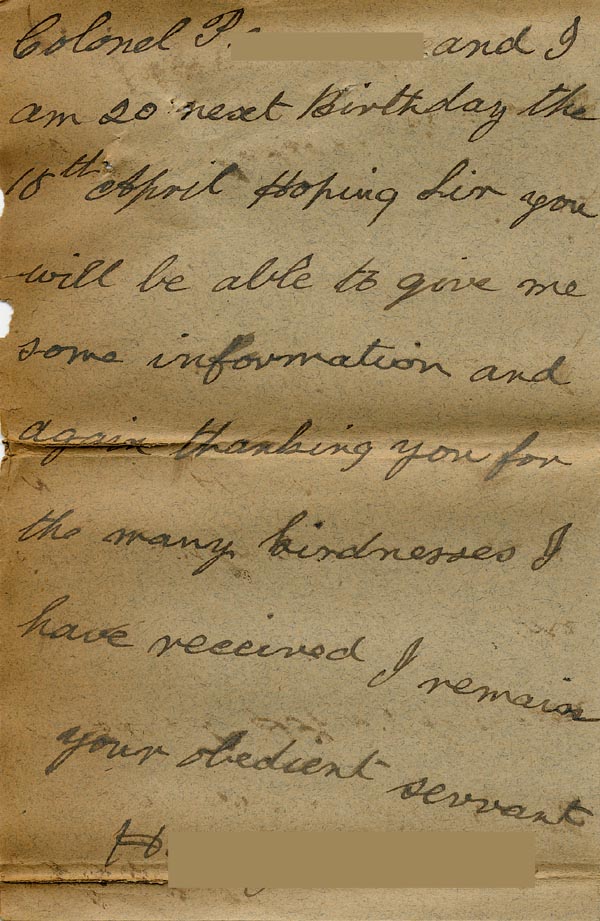 Colonel P. and I
am 20 next Birthday the
18th April Hoping Sir you
will be able to give me
some information and
again thanking you for
the many kindnesses I
have received I remain
your obedient servant
H.